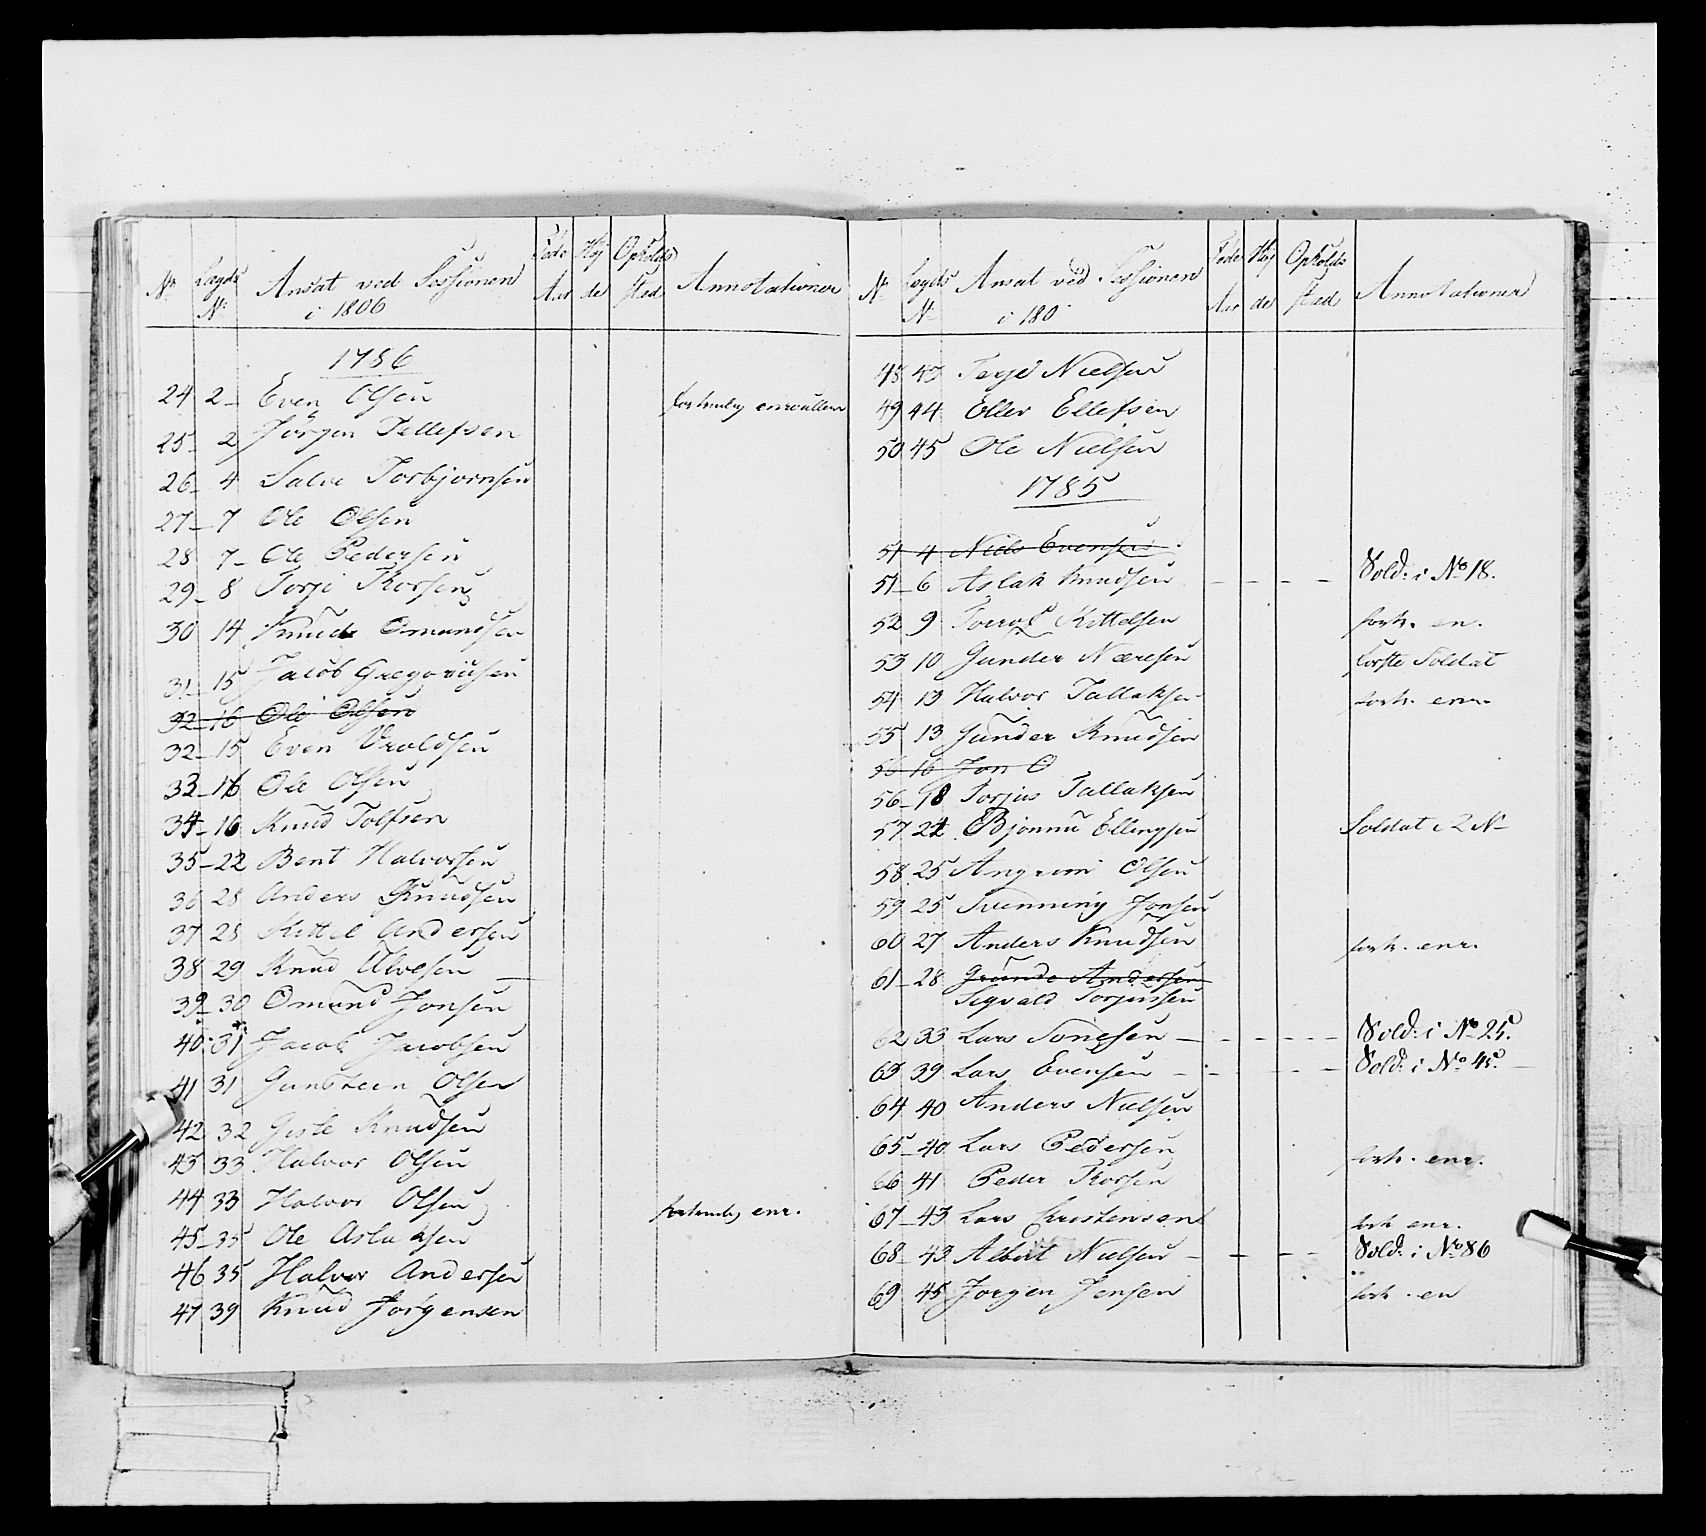 Nr Lægds Nr Ansat ved Sessionen i 1806 Føde Aar Høj de Opholds sted Annotationer
1786
24 2 Even Olsen forhenly enroulleru
25 2 Jörgen Tellefsen
26 4 Salve Torbjörnsen
27 7 Ole Olsen
28 7 Ole Pedersen
29 8 Torje Thorsen
30 14 Knud Omundsen
31 15 Jacob Gregoriusen
32 16 Ole Olsen
32 15 Even Vraldsen
33 16 Ole Olsen
34 16 Knud Tolfsen
35 22 Bent Halvorsen
36 28 Anders Knudsen
37 28 Kittel Andersen
38 29 Knud Alvesen
39 30 Omund Jonsen
40 31 Jacob Jacobsen
41 31 Gunsteen Olsen
42 32 Gisle Knudsen
43 33 Halvor Olsen
44 33 Halvor Olsen forhenly enr.
45 35 Ole Aslaksen
46 35 Halvor Andersen
47 39 Knud Jörgensen
Nr Lægds Nr Ansat ved Sessionen i 180 Føde Aar Høj de Opholds sted Annotationer
48 43 Terje Nielsen
49 44 Ellev Ellefsen
50 45 Ole Nielsen
1785
51 4 Niels Evensen
51 6 Aslak Knudsen Sold: i No 18.
52 9 Kittelsen forh. en.
53 10 Gunder Næresen første Soldat
54 13 Halvor Tallaksen forh. enr.
55 13 Gunder Knudsen
56 16 Jon O
56 18 Torjus Tallaksen
57 24 Bjonnu Ellingsen Soldat i 2 N
58 25 Angrim Olsen
59 25 Svenning Jonsen
60 27 Anders Knudsen forh. enr.
61 28 Andersen
Sigvald Torjussen
62 33 Lars Tonesen Sold: i No 25.
63 39 Lars Evensen Sold: i No 45.
64 40 Anders Nielsen
65 40 Lars Pedersen forh. enr.
66 41 Peder Thorsen
67 43 Lars Christensen forh enr.
68 43 Albret Nielsen Sold: i No 86
69 45 Jörgen Jensen forh. en